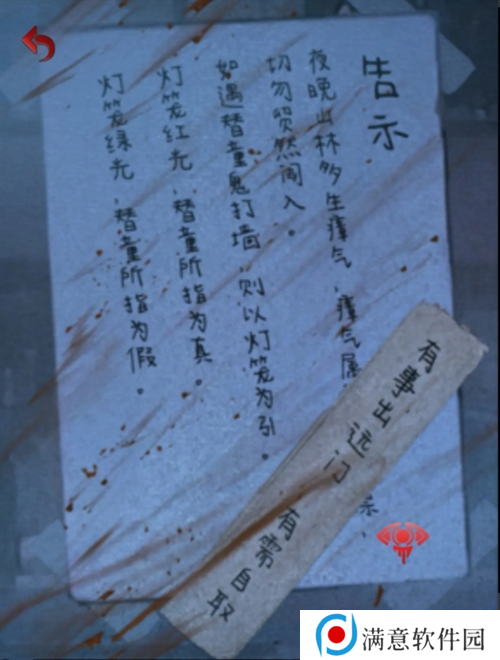 告示
夜晚山林多生瘴气,瘴气属
切勿贸然闯入。
如遇替童鬼打墙,则以灯笼为引。
灯笼红光,替童所指为真。
灯笼绿光,替童所指为假。
有事出远门
有需自取
满意软件园